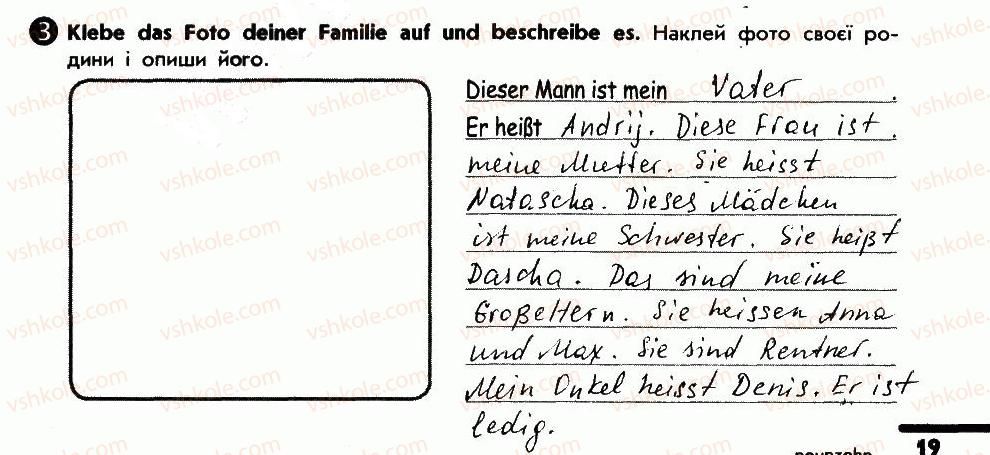 3 Klebe das Foto deiner Familie auf und beschreibe es. Наклей фото своєї ро-
дини і опиши його.
Dieser Mann ist mein Vater .
Er heißt Andrij. Diese Frau ist .
meine Mutter. Sie heisst
Natascha. Dieses Mädchen
ist meine Schwester. Sie heißt
Dascha. Das sind meine
Großeltern. Sie heissen Anna
und Max. Sie sind Rentner.
Mein Onkel heisst Denis. Er ist
ledig.
neunzehn 19